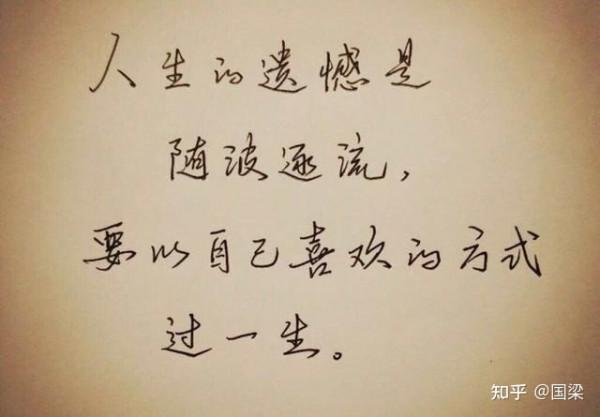 人生的遗憾是
随波逐流，
要以自己喜欢的方式
过一生。
知乎 @国梁